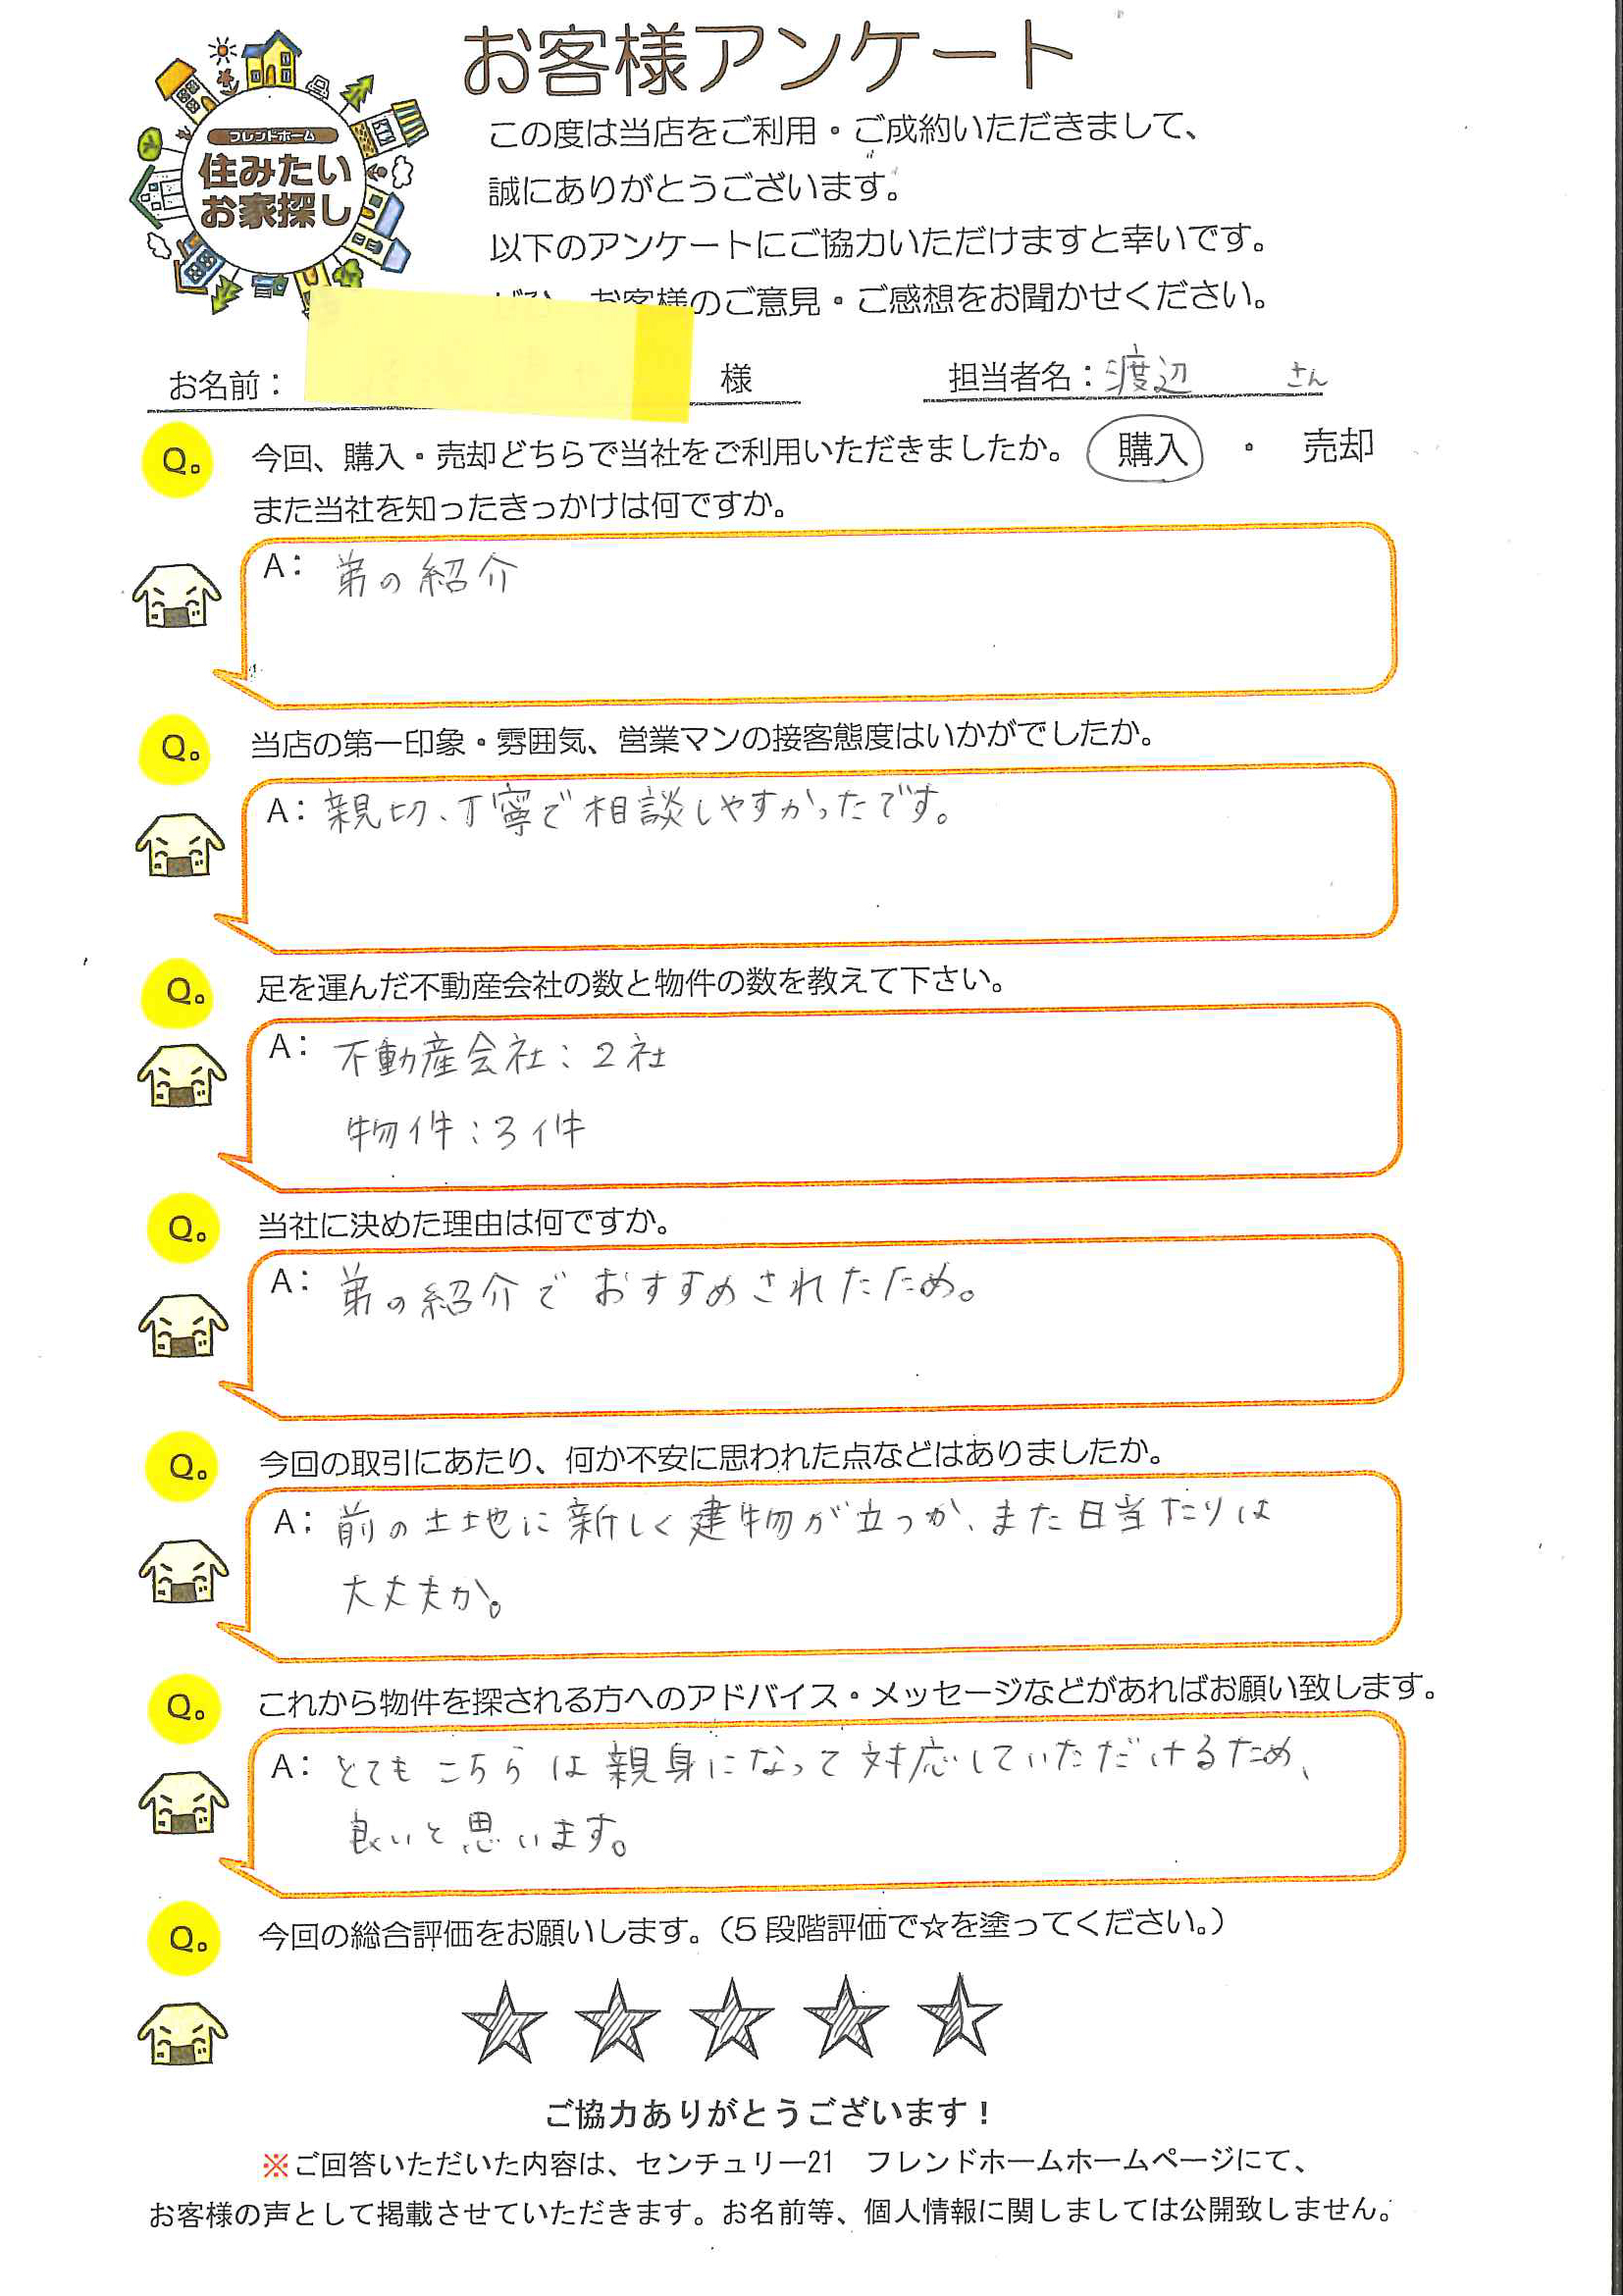 お客様アンケート
フレンドホーム
住みたい
お家探し
この度は当店をご利用・ご成約いただきまして、
誠にありがとうございます。
以下のアンケートにご協力いただけますと幸いです。
お客様のご意見・ご感想をお聞かせください。
お名前： 様 担当者名：渡辺 さん
Q。 今回、購入・売却どちらで当社をご利用いただきましたか。 購入 ・ 売却
また当社を知ったきっかけは何ですか。
A： 弟の紹介
Q。 当店の第一印象・雰囲気、営業マンの接客態度はいかがでしたか。
A：親切、丁寧で相談しやすかったです。
Q。 足を運んだ不動産会社の数と物件の数を教えて下さい。
A： 不動産会社：2社
物件：3件
Q。 当社に決めた理由は何ですか。
A： 弟の紹介でおすすめされたため。
Q。 今回の取引にあたり、何か不安に思われた点などはありましたか。
A：前の土地に新しく建物が立つか、また日当たりは
大丈夫か。
Q。 これから物件を探される方へのアドバイス・メッセージなどがあればお願い致します。
A：とてもこちらは親身になって対応していただけるため、
良いと思います。
Q。 今回の総合評価をお願いします。（5段階評価で☆を塗ってください。）
ご協力ありがとうございます！
※ご回答いただいた内容は、センチュリー21 フレンドホームホームページにて、
お客様の声として掲載させていただきます。お名前等、個人情報に関しましては公開致しません。